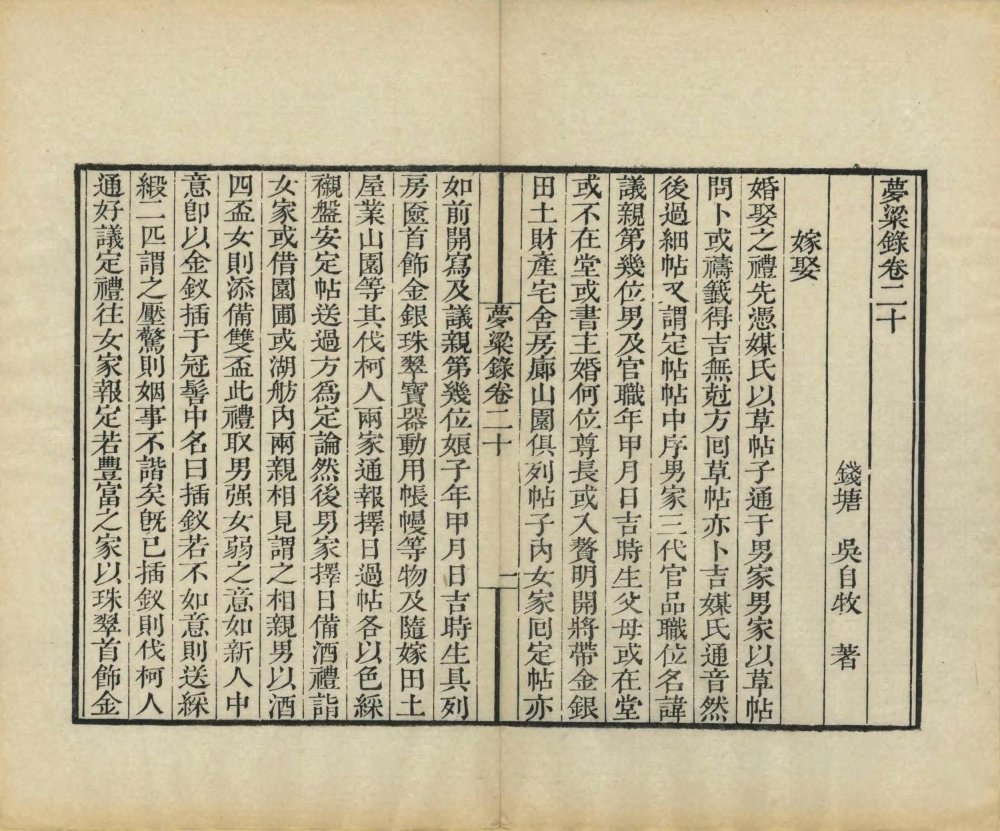 夢粱錄卷二十
錢塘　吳自牧　著
嫁娶
婚娶之禮先憑媒氏以草帖子通于男家男家以草帖
問卜或禱籤得吉無尅方回草帖亦卜吉媒氏通音然
後過細帖又謂定帖帖中序男家三代官品職位名諱
議親第幾位男及官職年甲月日吉時生父母或在堂
或不在堂或書主婚何位尊長或入贅明開將帶金銀
田土財產宅舍房廊山園俱列帖子內女家回定帖亦
夢粱錄卷二十
一
如前開寫及議親第幾位娘子年甲月日吉時生具列
房奩首飾金銀珠翠寶器動用帳幔等物及隨嫁田土
屋業山園等其伐柯人兩家通報擇日過帖各以色綵
襯盤安定帖送過方爲定論然後男家擇日備酒禮詣
女家或借園圃或湖舫內兩親相見謂之相親男以酒
四盃女則添備雙盃此禮取男强女弱之意如新人中
意卽以金釵插于冠髻中名曰插釵若不如意則送綵
緞二匹謂之壓驚則姻事不諧矣旣已插釵則伐柯人
通好議定禮往女家報定若豐富之家以珠翠首飾金